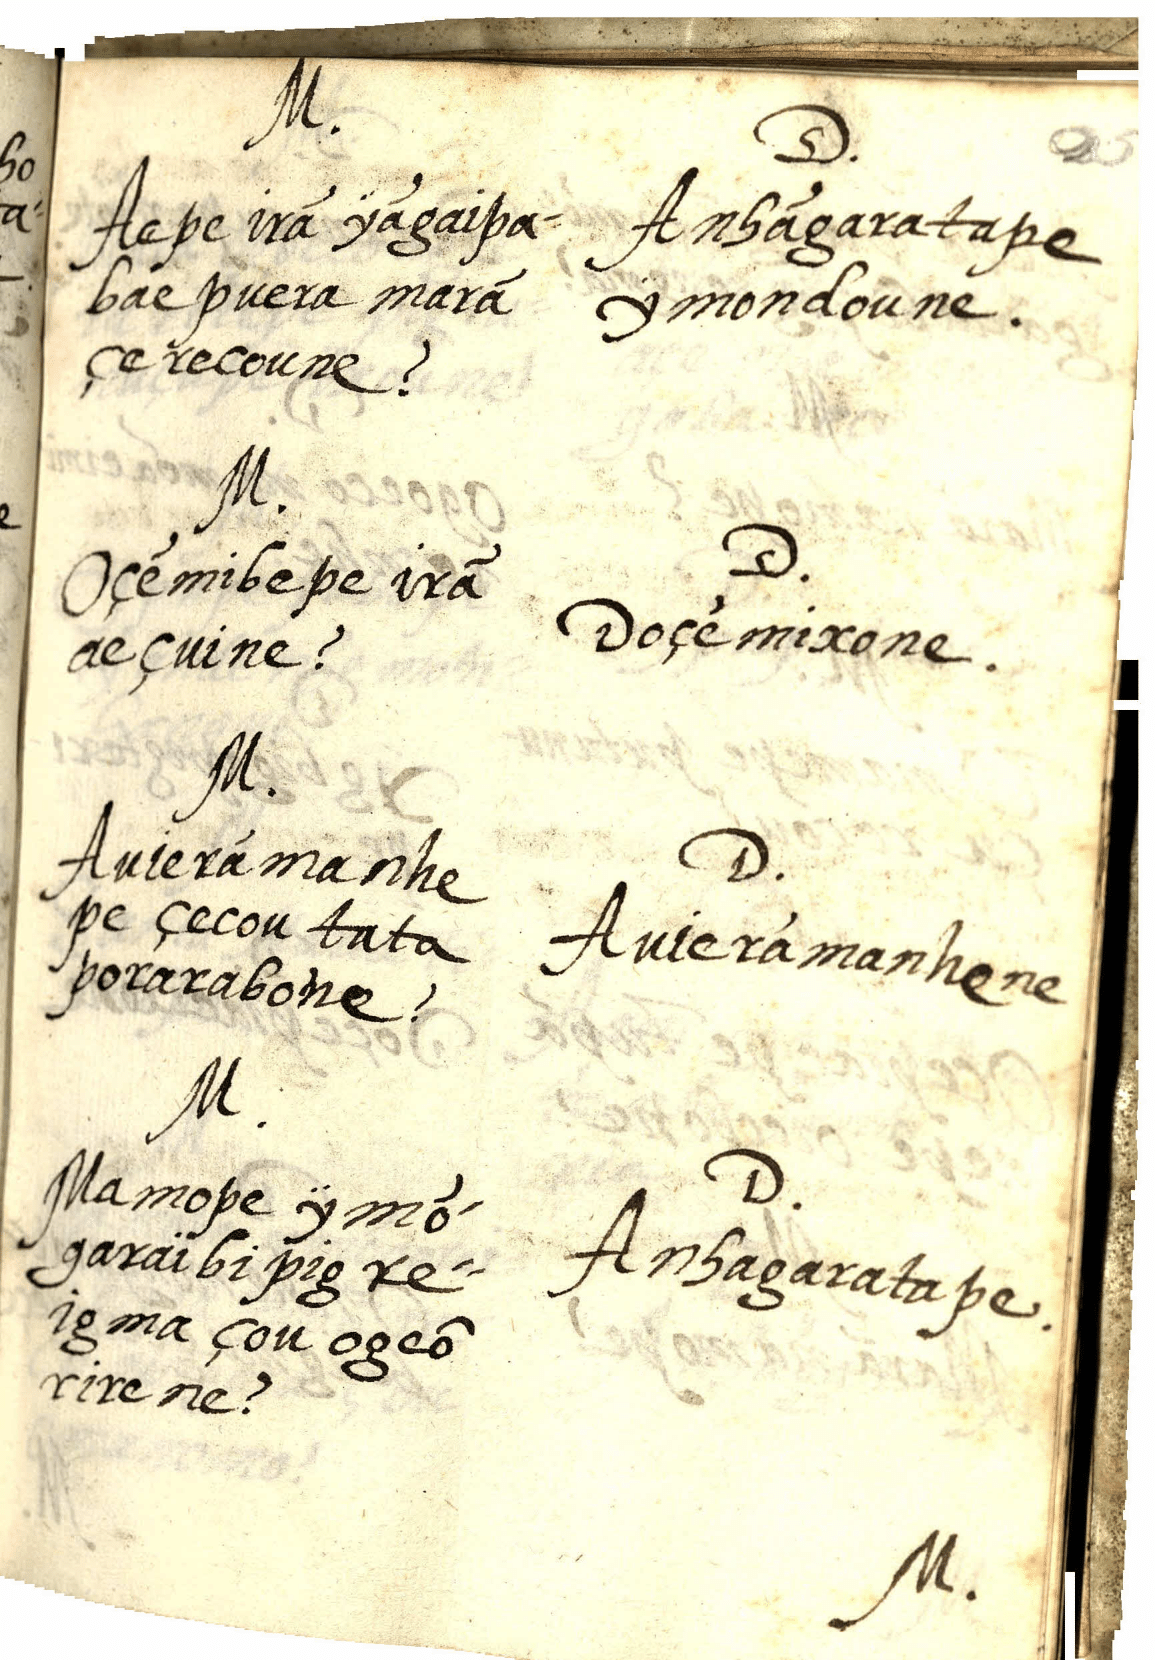 M.
Aepe irã ÿágaipa-
bae puera marã
çerecoune?
D.
Anhágaratape
ÿmondoune.
M.
Oçémibepe irã
aeçuine?
D.
Doçémixone.
M.
Auierámanhe
pe çecou tata
porarabone?
D.
Auierámanhene
M.
Mamope ÿmó-
garaïbipigre-
igma çou ogeõ
rirene?
D.
Anhagaratape.
M.